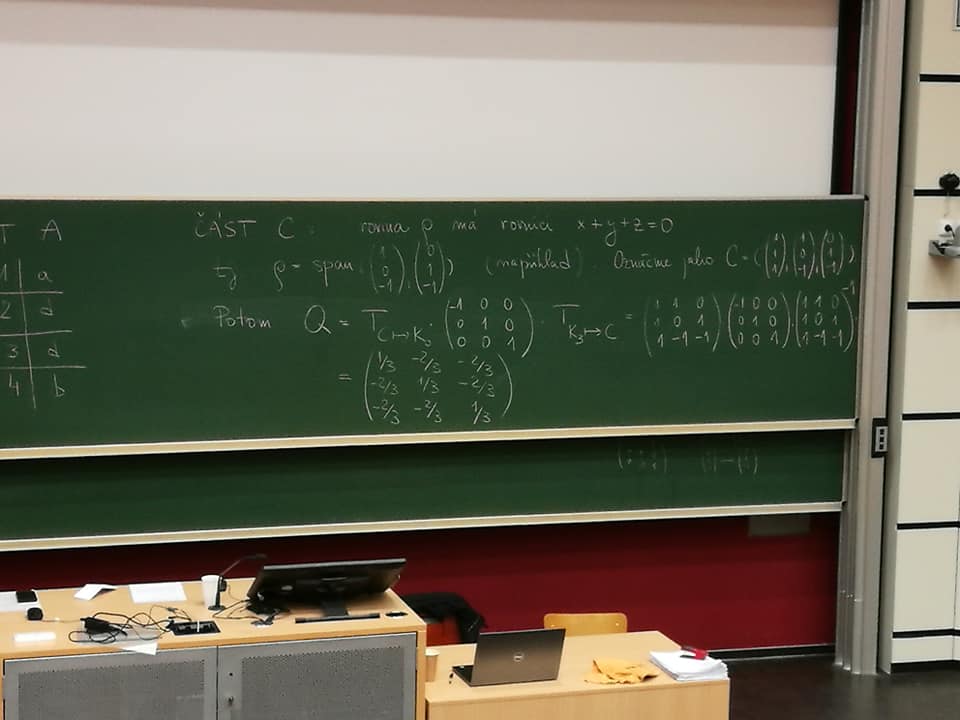 T | A
1 | a
2 | d
3 | d
4 | b
ČÁST C: rovina ρ má rovnici x+y+z=0
tj ρ = span (( 1 0 -1 ), ( 0 1 -1 )) (například). Označme jako C = (( 1 1 1 ), ( 1 0 -1 ), ( 0 1 -1 ))
Potom Q = T C↦K₃ · ( -1 0 0 / 0 1 0 / 0 0 1 ) · T K₃↦C = ( 1 1 0 / 1 0 1 / 1 -1 -1 ) ( -1 0 0 / 0 1 0 / 0 0 1 ) · ( 1 1 0 / 1 0 1 / 1 -1 -1 )⁻¹
= ( 1/3 -2/3 -2/3 / -2/3 1/3 -2/3 / -2/3 -2/3 1/3 )